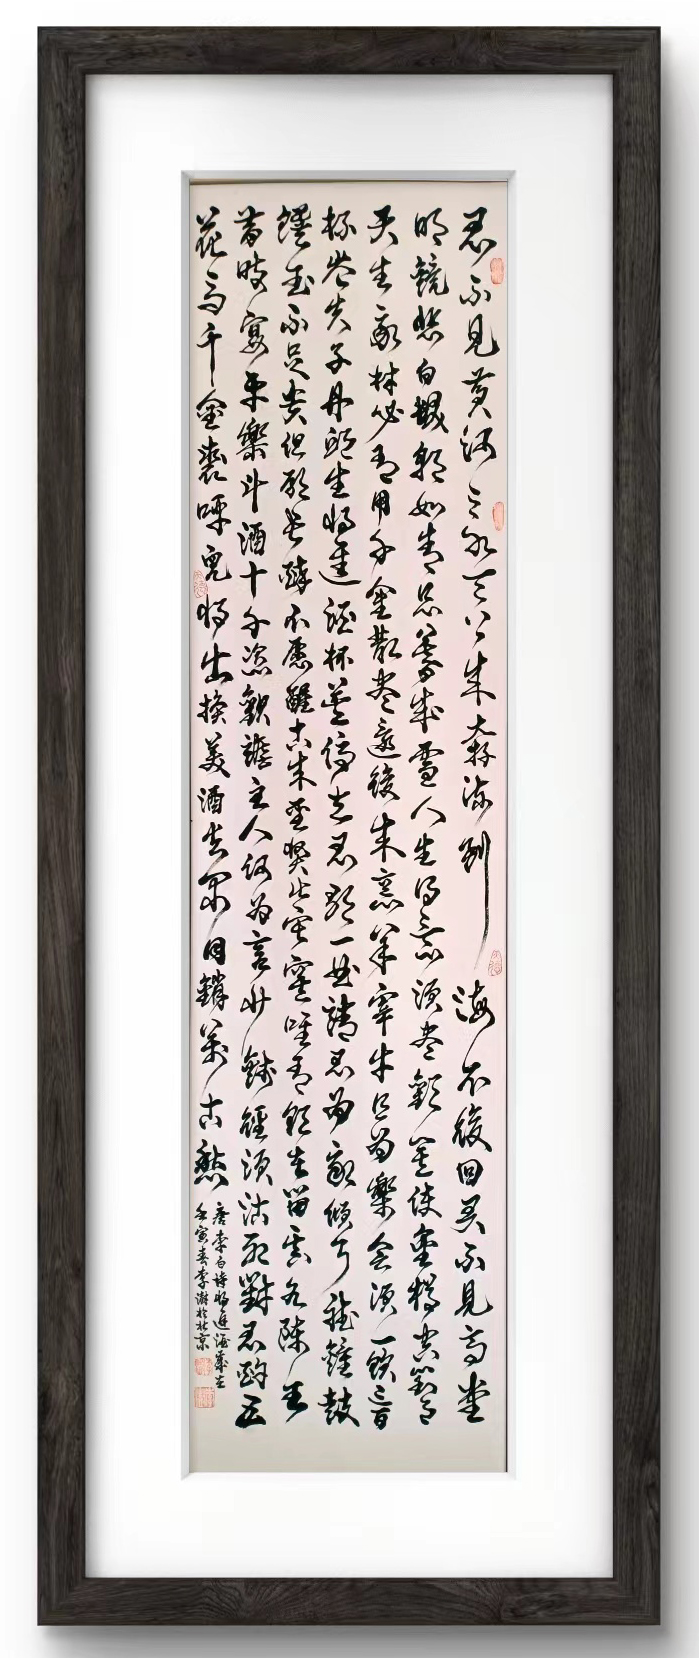 君不見黃河之水天上來奔流到海不復回君不見高堂
明鏡悲白髮朝如青絲暮成雪人生得意須盡歡莫使金樽空對月
天生我材必有用千金散盡還復來烹羊宰牛且為樂會須一飲三百
杯岑夫子丹邱生將進酒杯莫停與君歌一曲請君為我傾耳聽鐘鼓
饌玉不足貴但願長醉不願醒古來聖賢皆寂寞唯有飲者留其名陳王
昔時宴平樂斗酒十千恣歡謔主人何為言少錢徑須沽取對君酌五
花馬千金裘呼兒將出換美酒與爾同銷萬古愁
唐李白詩將進酒歲在
壬寅春李游於北京